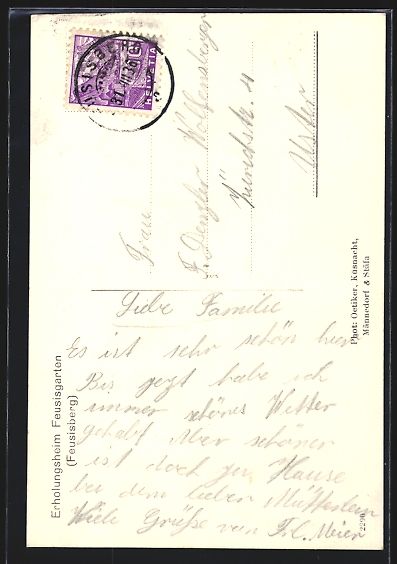 Erholungsheim Feusisgarten
(Feusisberg)
HELVETIA
Frau
F. Dengler Wolfensberger
Zürichstr. 11
Uster
Liebe Familie
Es ist sehr schön hier
Bis jezt habe ich
immer schönes Wetter
gehabt Aber schöner
ist doch zu Hause
bei dem lieben Mütterlein
Viele Grüße von Frl. Meier
Phot: Oetiker, Küsnacht,
Männedorf & Stäfa